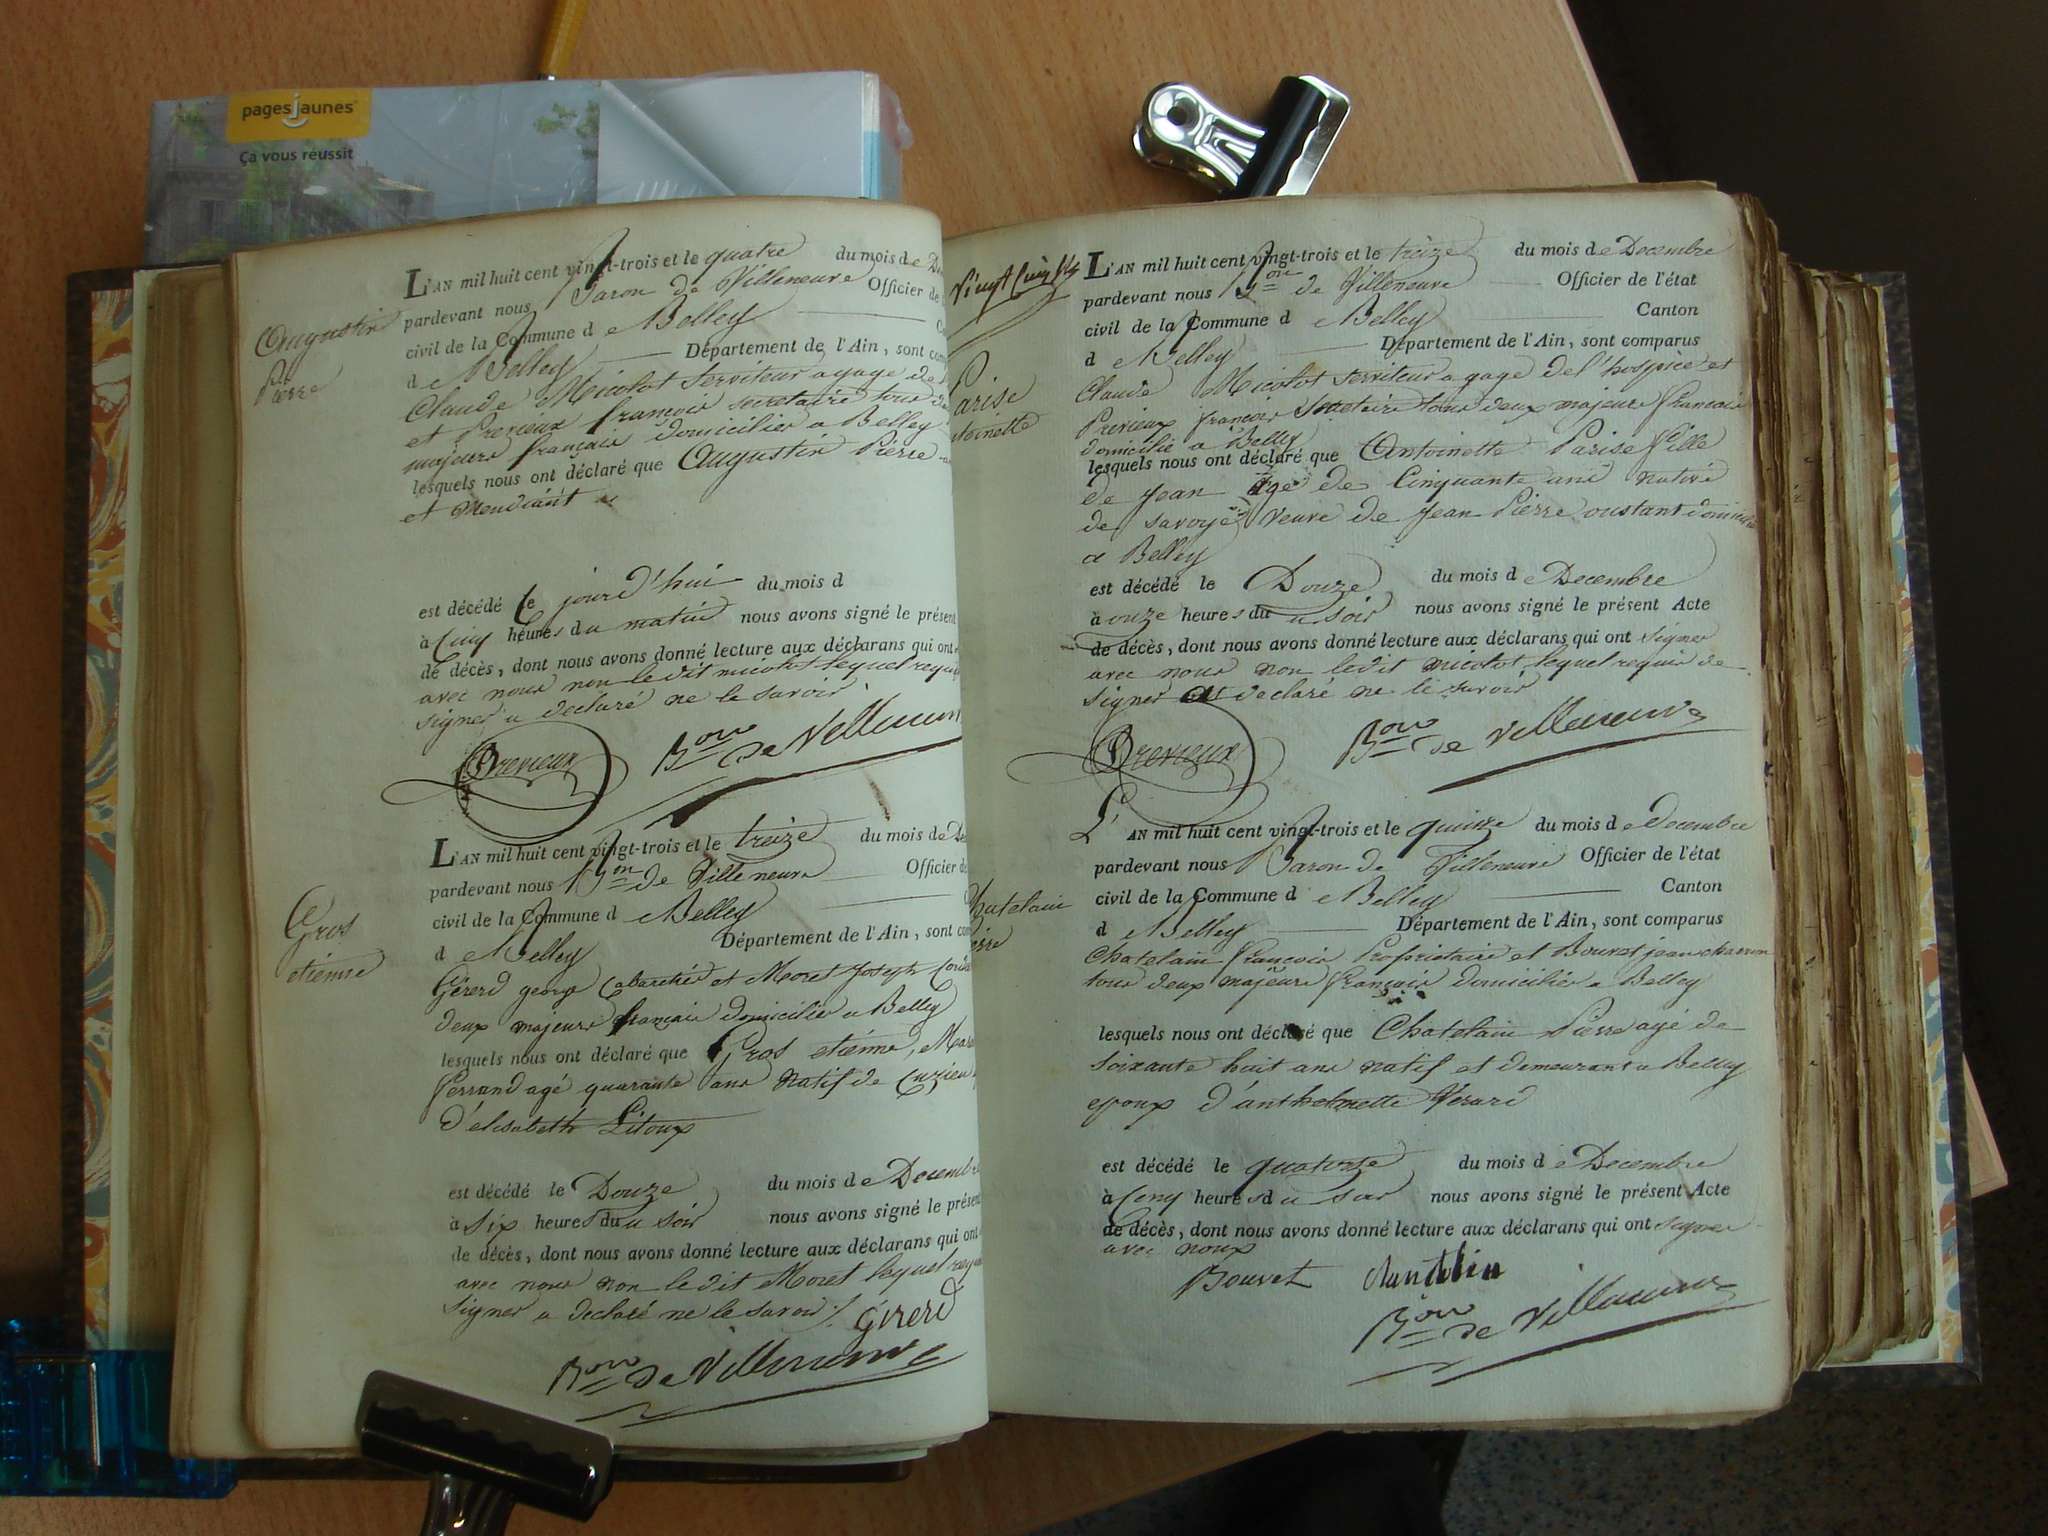 pagesjaunes
Ça vous réussit
Augustin
Pierre
L'AN mil huit cent vingt-trois et le quatre du mois de
pardevant nous Baron de Villeneuve Officier de
civil de la Commune de Belley
de Belley Département de l'Ain, sont com
Claude Micolot serviteur a gage de
et Previeux françois secretaire tous
majeurs français domicilier a Belley
lesquels nous ont déclaré que Augustin Pierre
et mendiant
est décédé le jourd'hui du mois d
à cinq heures du matin nous avons signé le présent
de décès, dont nous avons donné lecture aux déclarans qui ont
avec nous non le dit micolot lequel requis
signer a declaré ne le savoir
Previeux Bon de Villeneuve
Gros
etienne
L'AN mil huit cent vingt-trois et le treize du mois de
pardevant nous Bon de Villeneuve Officier de
civil de la Commune de Belley
de Belley Département de l'Ain, sont com
Gererd george Cabaretier et Moret Joseph
deux majeurs français domicilier a Belley
lesquels nous ont déclaré que Gros etienne,
Ferrand agé quarante ans Natif de Cuzieu
d'elisabeth Litoux
est décédé le Douze du mois de Decembre
à six heures du soir nous avons signé le présen
de décès, dont nous avons donné lecture aux déclarans qui ont
avec nous non le dit Moret lequel requis
signer a declaré ne le savoir ./. Girerd
Bon de Villeneuve
Vingt cinq
Parise
toinette
L'AN mil huit cent vingt-trois et le treize du mois de Decembre
pardevant nous Bon de Villeneuve Officier de l'état
civil de la Commune de Belley Canton
de Belley Département de l'Ain, sont comparus
Claude Micolot serviteur a gage de l'hospice et
Previeux françois Secretaire tous deux majeurs français
domicilié a Belley
lesquels nous ont déclaré que Antoinette Parise fille
de Jean age de Cinquante ans native
de savoye veuve de Jean Pierre oustant domicilié
a Belley
est décédé le Douze du mois de Decembre
à onze heures du soir nous avons signé le présent Acte
de décès, dont nous avons donné lecture aux déclarans qui ont signer
avec nous non le dit micolot lequel requis de
signer a declaré ne le savoir
Previeux Bon de Villeneuve
hatelain
erre
L'AN mil huit cent vingt-trois et le quinze du mois de Decembre
pardevant nous Baron de Villeneuve Officier de l'état
civil de la Commune de Belley Canton
de Belley Département de l'Ain, sont comparus
Chatelain françois Proprietaire et Bouvet jean charron
tous deux majeurs français domicilier a Belley
lesquels nous ont déclaré que Chatelain Pierre agé de
soixante huit ans natif et demeurant a Belley
epoux d'anthelmette Verard
est décédé le quatorze du mois de Decembre
à cinq heures du soir nous avons signé le présent Acte
de décès, dont nous avons donné lecture aux déclarans qui ont signer
avec nous
Bouvet
Bon de Villeneuve